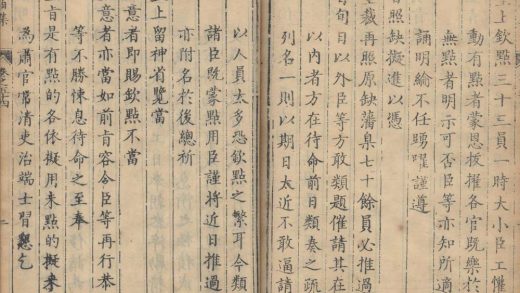 上欽點三十三員一時大小臣工懽
動有點者蒙恩拔擢各官既樂於
無點者明示可否臣等亦知所適
誦明綸不任踴躍謹遵
旨照缺擬進以憑
裁再照原缺藩臬七十餘員必推過
旬日以外臣等方敢類題催請其在
以內者方在待命前日類奏之疏
列名一則以期日太近不敢逼請
以人員太多恐欽點之繁耳今類
諸臣既蒙點用臣謹將近日推過
亦附名於後總祈
上留神省覽當
意者即賜欽點不當
意者亦當如前肯容令臣等再行恭
等不勝悚息待命之至奉
旨是有點的各依擬用未點的擬來
為肅官常清吏治端士習懇乞
二